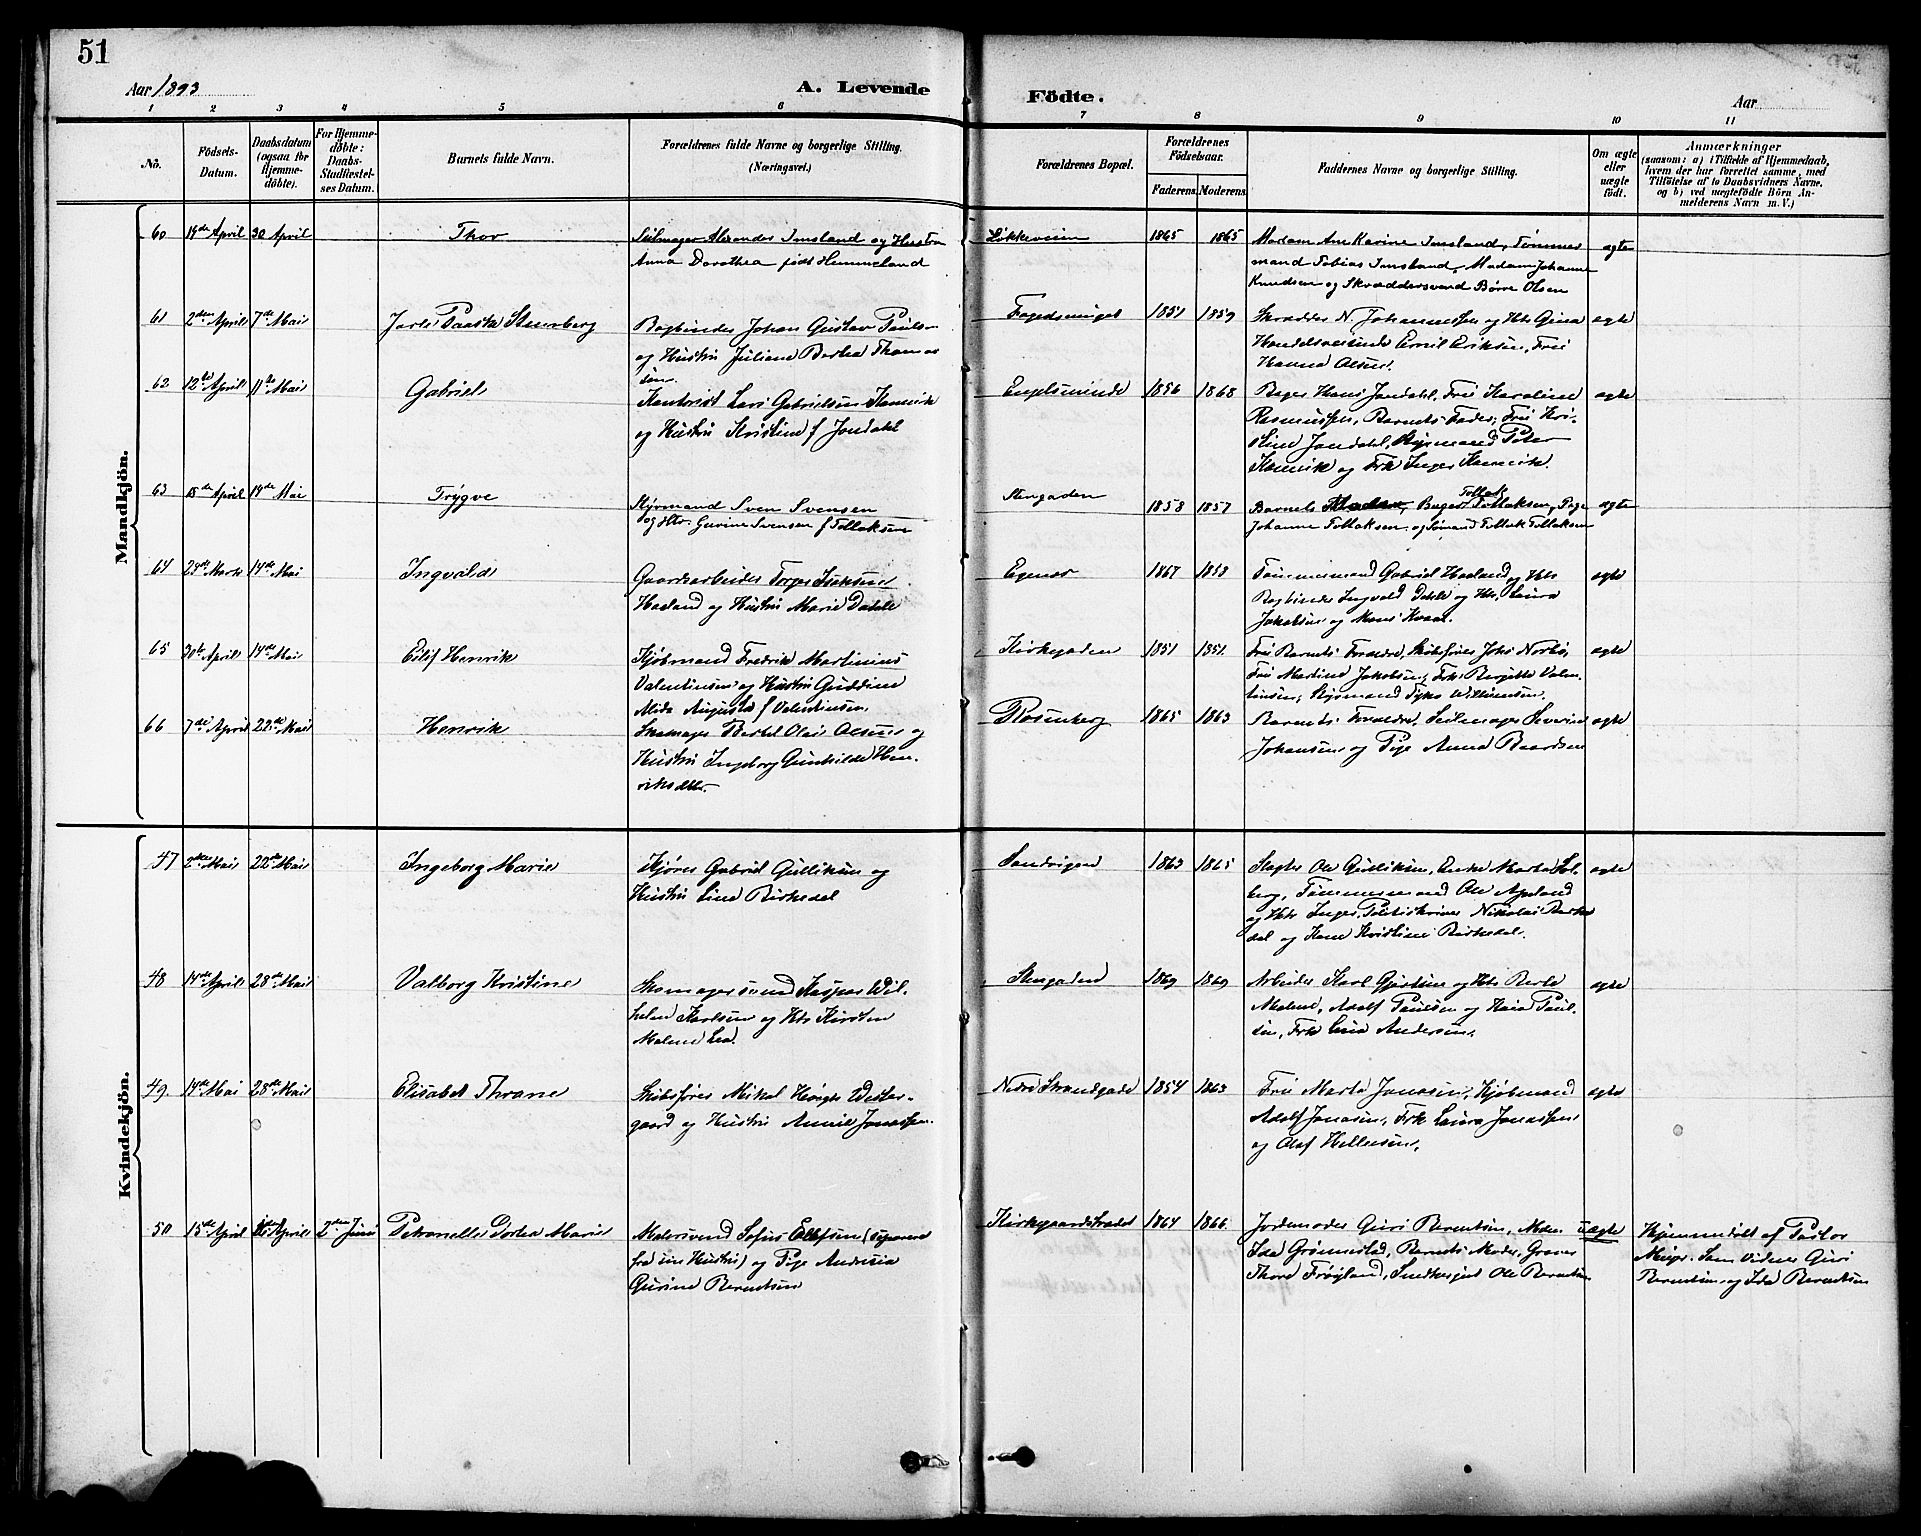 51
Aar 1893
A. Levende
Födte.
Aar
1 2 3 4 5 6 7 8 9 10 11
No.
Födsels-Datum.
Daabsdatum (ogsaa for Hjemmedöbte).
For Hjemmedöbte: Daabs-Stadfæstelses Datum.
Barnets fulde Navn.
Forældrenes fulde Navne og borgerlige Stilling. (Næringsvei.)
Forældrenes Bopæl.
Forældrenes Fødselsaar.
Faderens. Moderens.
Faddernes Navne og borgerlige Stilling.
Om ægte eller uægte født.
Anmærkninger
(saasom: a) i Tilfælde af Hjemmedaab,
hvem der har forrettet samme, med
Tilföielse af to Daabsvidners Navne,
og b) ved uægtefödte Börn An-
melderens Navn m. V.)
Mandkjön.
60 18de April 30 April Thor
Seilmager Alexander Imsland og Hustru
Anna Dorothea født Hemmeland
Løkkeveien 1865 1865
Madam Ane Karine Imsland, Tømmer
mand Tobias Imsland, Madam Johanne
Knudsen og Skræddersvend Børre Olsen
ægte
61 2den April 7de Mai Jarl Paasta Stenberg
Bogbinder Johan Gustav Pauls-
og Hustru Juliane Bertea Thomas
sen.
1851 1859
Skrædder N. Johannessen og Htr Gina
Handelsreisende Emil Eriksen, Fru
Hanna Olsen.
ægte
62 12te April 11te Mai Gabriel
Kontorist Lars Gabrielsen Kannik
og Hustru Kristine f Jondahl
Engelsminde 1856 1868
Bager Hans Jondahl, Fru Karoline
Rasmussen, Barnets Fader, Fru Kri-
stine Jondahl, Styrmand Peter
Kannik og Frk Inger Kannik.
ægte
63 15de April 14de Mai Trygve
Styrmand Sven Svensen
og Htr. Gurine Svensen f Tollaksen
Stengaden 1858 1857
Barnets Fader, Bager Tollak Tollaksen, Pige
Johanne Tollaksen og Sømand Tollak Tollaksen
ægte
64 23de Marts 14de Mai Ingvald
Gaardsarbeider Torger Isaksen
Haaland og Hustru Marie Dahle
Egenes 1867 1858
Tømmermand Gabriel Haaland og Htr
Bogbinder Ingvald Dahle og Htr, Laura
Jakobsen og Mons Kvaal
ægte
65 30te April 14de Mai Eilif Henrik
Kjøbmand Fredrik Martinius
Valentinsen og Hustru Guddine
Alida Augusta f Valentinsen.
Kirkegaden 1851 1851
Fru Barnets Forældre, Skibsfører Johs Norbø,
Fru Martine Jakobsen, Frk Bergitte Valen-
tinsen, Styrmand Tyko Willumsen.
ægte
66 7de April 22de Mai Henrik
Skomager Bertel Olai Olsen og
Hustru Ingeborg Gunhilde Hen-
riksdtr.
Rosenberg 1865 1863
Barnets Forældre, Seilmager Severin
Johansen og Pige Anna Baardsen
ægte
Kvindekjön.
47 2den Mai 22de Mai Ingeborg Marie
Kjører Gabriel Gulliksen og
Hustru Lina Birkedal
Sandvigen 1863 1865
Slagter Ole Gulliksen, Enke Marta Sol-
berg, Tømmermand Ole Apeland
og Htr Inger, Politiskriver Nikolai Birke
dal og Kone Kristine Birkedal.
ægte
48 14de April 28de Mai Valborg Kristine
Skomagersvend Kasper Wil-
helm Karlsen og Htr Kirsten
Malene Lea.
Stengaden 1869 1869
Arbeider Karl Gjertsen og Htr Berte
Malene, Adolf Paulsen og Kaia Paul-
sen, Frk Lina Andersen.
ægte
49 14de Mai 28de Mai Elisabet Thrane
Skibsfører Mikal Høegh Wester-
gaard og Hustru Amalie Jonassen.
Nedre Strandgade 1854 1863
Fru Marta Jonassen, Kjøbmand
Adolf Jonassen, Frk Laura Jonassen
og Olaf Helliesen.
ægte
50 15de April 18de April 2den Juni Petronelle Dortea Marie
Malersvend Sofus Ellefsen (separeret
fra sin Hustru) og Pige Andresia
Gurine Berentsen
Kirkegaardstrædet 1864 1866
Jordemoder Guri Berentsen, Madam
Ida Grønnestad, Barnets Moder, Graver
Thore Frøyland, Snedkergut Ole Berentsen
uægte
Hjemmedøbt af Pastor
Meyer. Som Vidner Guri
Berentsen og Ida Berentsen